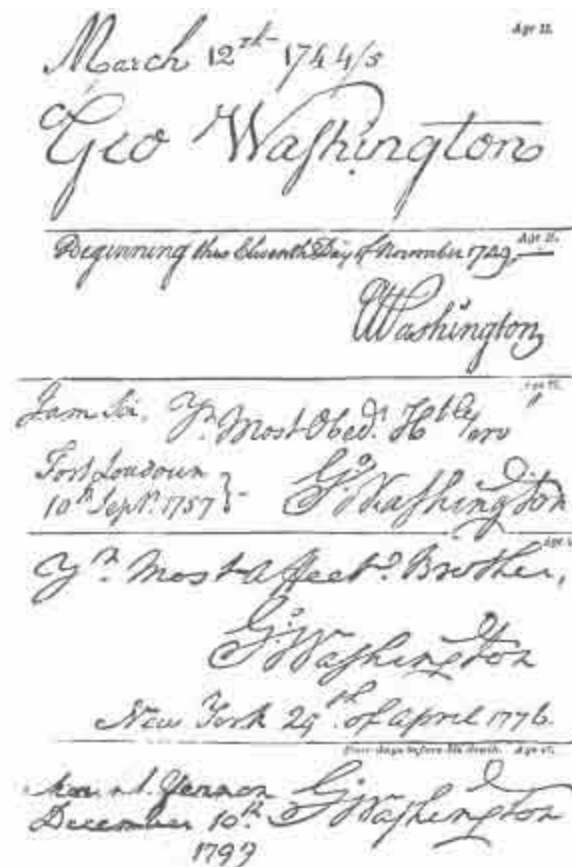 Age 13.
March 12th 1744/5
Geo Washington
Beginning this Eleventh Day of November 1749.
GWashington
I am Sir, Yr. Most Obedt. Hble
Fort Loudoun
10th Septr. 1757
Go. Washington
Yr. Most Affecte. Brother,
Go. Washington
New York 29th. of April 1776.
Four days before his death. Age 67.
Mount Vernon
December 10th.
1799
Go. Washington